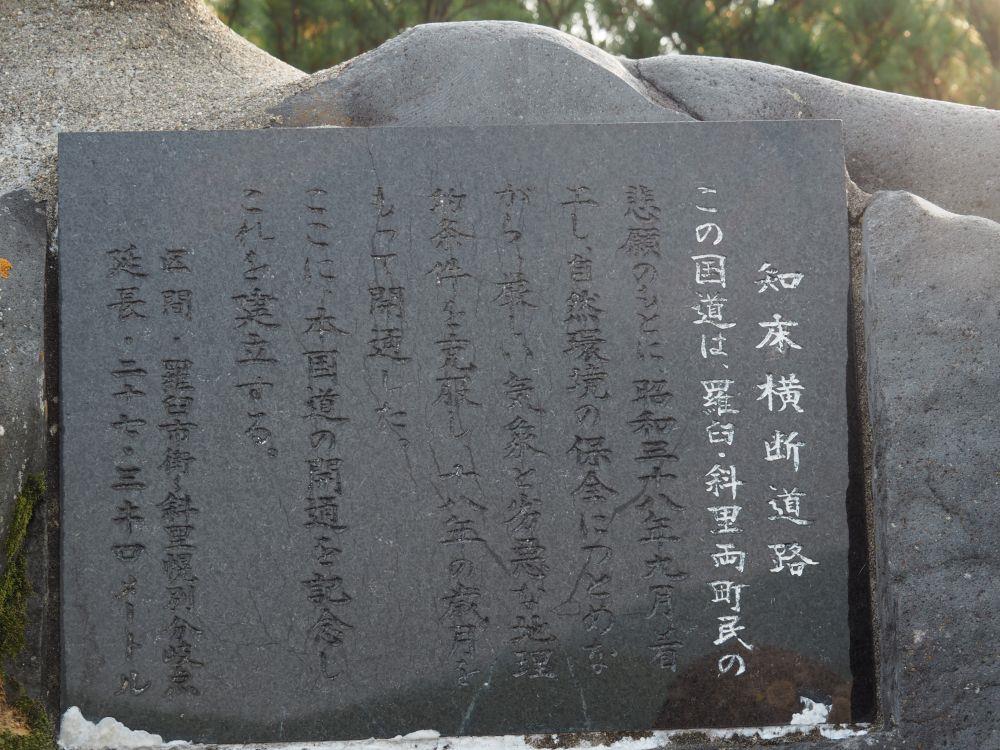 知床横断道路
この国道は、羅臼・斜里両町民の
悲願のもとに、昭和三十八年九月着
工し、自然環境の保全につとめな
がら、厳しい気象と劣悪な地理
的条件を克服し十八年の歳月を
もって開通した。
ここに、本国道の開通を記念し
これを建立する。
区間・羅臼市街~斜里幌別分岐点
延長・二十七・三キロメートル